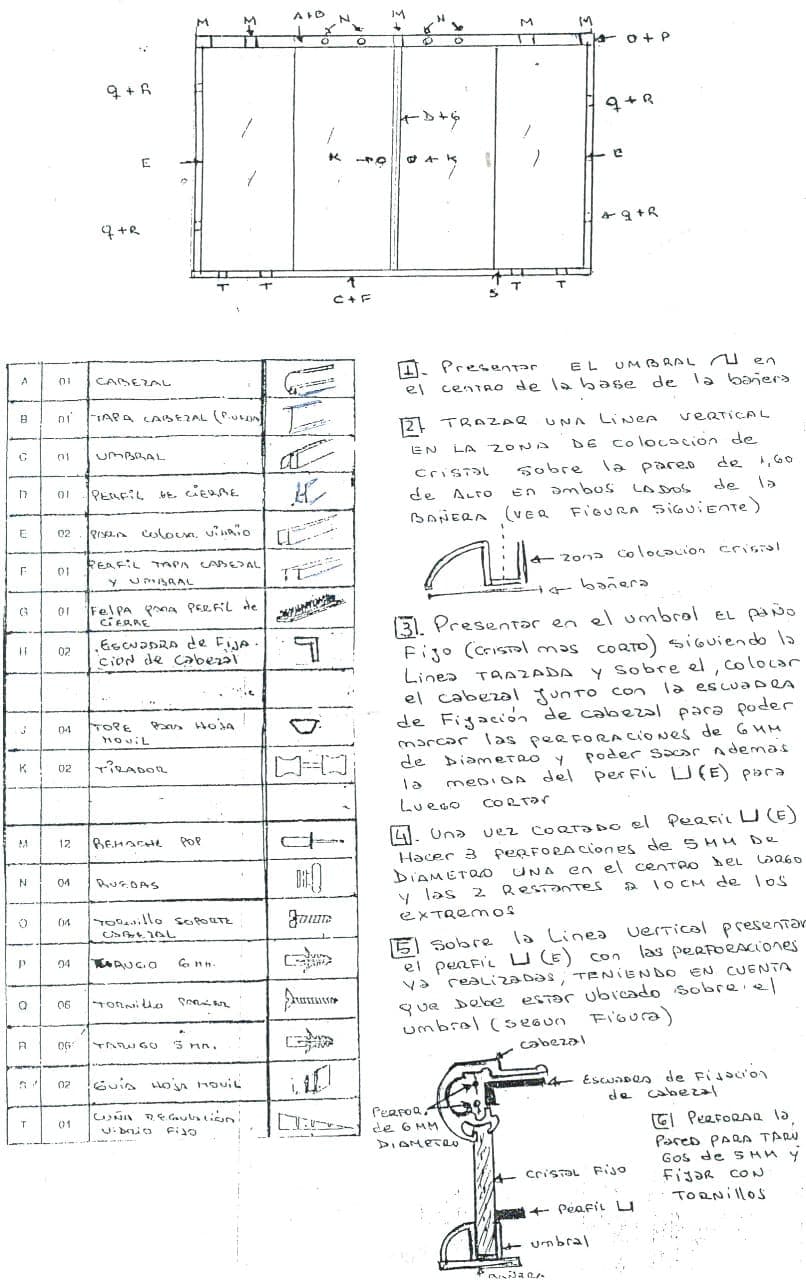 M M A+B N M N M M
O + P
q + R
q + R
D + G
E
K
K
E
q + R
q + R
T T C + F S T T
A 01 CABEZAL
B 01 TAPA CABEZAL
C 01 UMBRAL
D 01 PERFIL DE CIERRE
E 02 PARA COLOCAR VIDRIO
F 01 PERFIL TAPA CABEZAL
Y UMBRAL
G 01 FELPA PARA PERFIL de
CIERRE
H 02 ESCUADRA de FIJA-
CION de CABEZAL
J 04 TOPE PARA HOJA
MOVIL
K 02 TIRADOR
M 12 REMACHE POP
N 04 RUEDAS
O 04 TORNILLO SOPORTE
CABEZAL
P 04 TARUGO 6 MM.
Q 06 TORNILLO
R 06 TARUGO 5 MM.
S 02 GUIA HOJA MOVIL
T 01 CUÑA REGULACION
VIDRIO FIJO
1. Presentar EL UMBRAL en
el centro de la base de la bañera
2. TRAZAR UNA LINEA VERTICAL
EN LA ZONA DE Colocación de
CRISTAL sobre la pared de 1,60
de ALTO EN ambos LADOS de la
BAÑERA (VER FIGURA SIGUIENTE)
zona colocacion cristal
bañera
3. Presentar en el umbral EL PAÑO
Fijo (CRISTAL mas CORTO) siguiendo la
Linea TRAZADA y sobre el, colocar
el cabezal junto con la escuadra
de Fijación de cabezal para poder
marcar las PERFORACIONES de 6 MM
de Diametro y poder sacar Ademas
la medida del perfil U (E) para
Luego cortar
4. Una vez CORTADO el PERFIL U (E)
Hacer 3 PERFORACIONES de 5 MM DE
DIAMETRO UNA en el centro DEL LARGO
y las 2 RESTANTES a 10 CM de los
extremos
5 Sobre la Linea vertical presentar
el PERFIL U (E) con las PERFORACIONES
ya realizadas, TENIENDO EN CUENTA
que Debe estar ubicado sobre el
umbral (SEGUN FIGURA)
cabezal
ESCUADRA de FIJACION
de CABEZAL
PERFOR.
de 6 MM
DIAMETRO
6 PERFORAR la
Pared PARA TARU
GOS de 5 MM y
FIJAR CON
TORNILLOS
CRISTAL FIJO
PERFIL U
umbral
BAÑERA